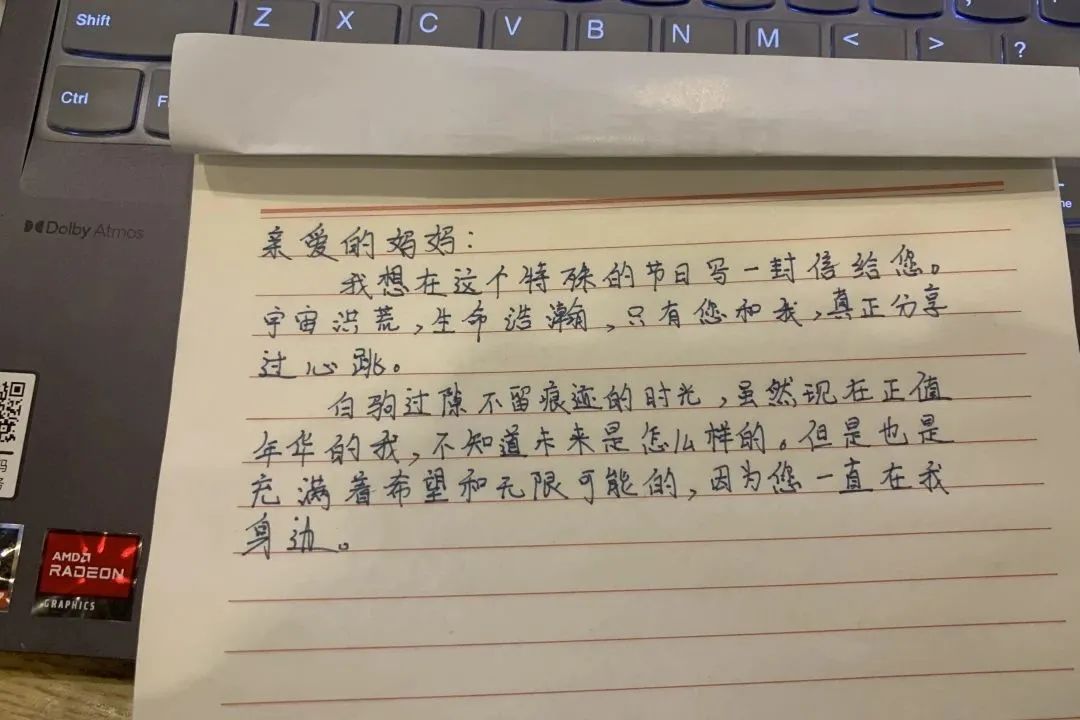 Shift Z X C V B N M < > ?
Ctrl F
Dolby Atmos
亲爱的妈妈：
我想在这个特殊的节日写一封信给您。
宇宙洪荒，生命浩瀚，只有您和我，真正分享
过心跳。
白驹过隙不留痕迹的时光，虽然现在正值
年华的我，不知道未来是怎么样的。但是也是
充满着希望和无限可能的，因为您一直在我
身边。
AMD
RADEON
GRAPHICS